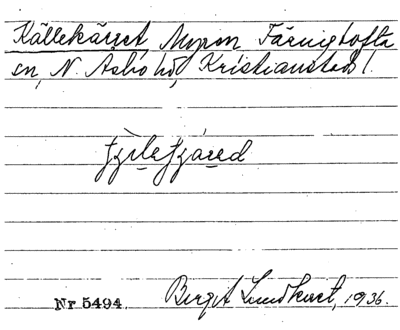 Källekärret, Mosen Färingtofta
sn, N. Åsbo hd, Kristianstads l.
Nr 5494. Birgit Lundkvist, 1936.